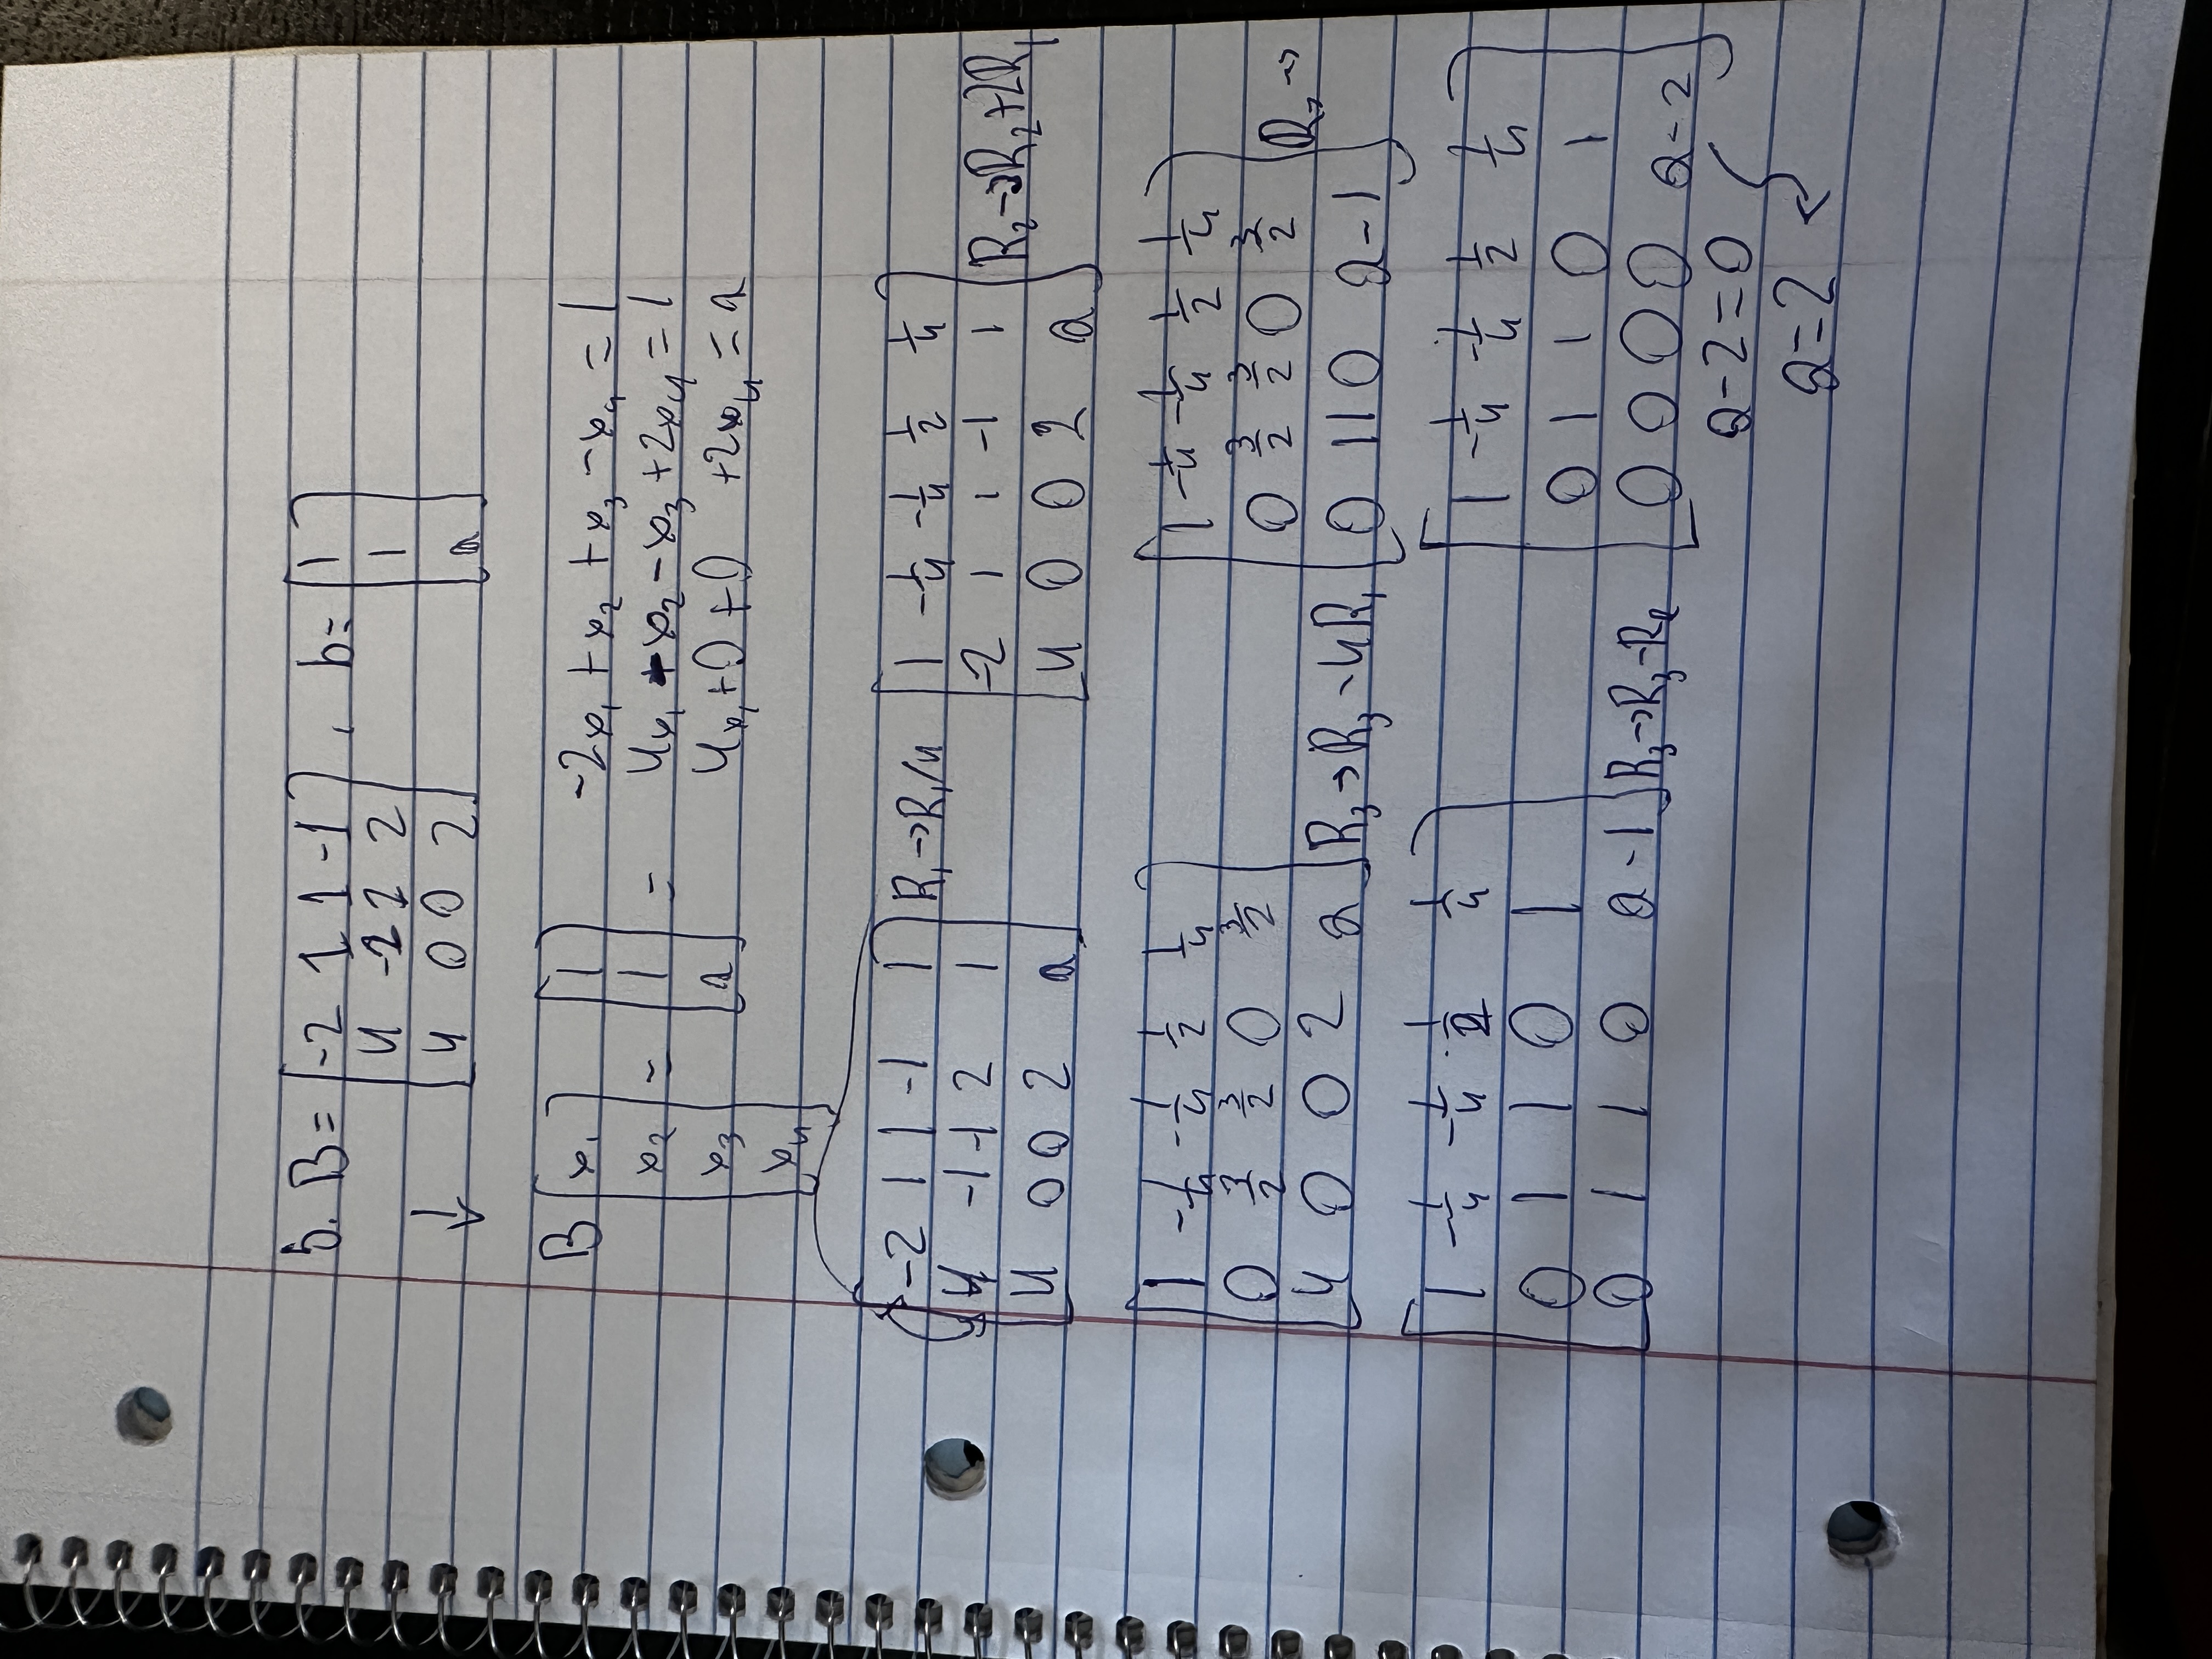 5. B = [-2 1 1 -1] , b = [1]
4 -1 -1 2 1
4 0 0 2 a
B [x₁ x₂ x₃ x₄] = [1 1 a] =
-2x₁ + x₂ + x₃ - x₄ = 1
4x₁ - x₂ - x₃ + 2x₄ = 1
4x₁ + 0 + 0 + 2x₄ = a
-2 1 1 -1 1 R₁→R₁/4
4 -1 -1 2 1
4 0 0 2 a
1 -1/4 -1/4 1/2 1/4
-2 1 1 -1 1 R₂→R₂+2R₁
4 0 0 2 a
1 -1/4 -1/4 1/2 1/4
0 3/2 3/2 0 3/2
4 0 0 2 a R₃→R₃-4R₁
1 -1/4 -1/4 1/2 1/4
0 3/2 3/2 0 3/2 R₂→
0 1 1 0 a-1
1 -1/4 -1/4 1/2 1/4
0 1 1 0 1
0 1 1 0 a-1 R₃→R₃-R₂
1 -1/4 -1/4 1/2 1/4
0 1 1 0 1
0 0 0 0 a-2
a-2=0
a=2